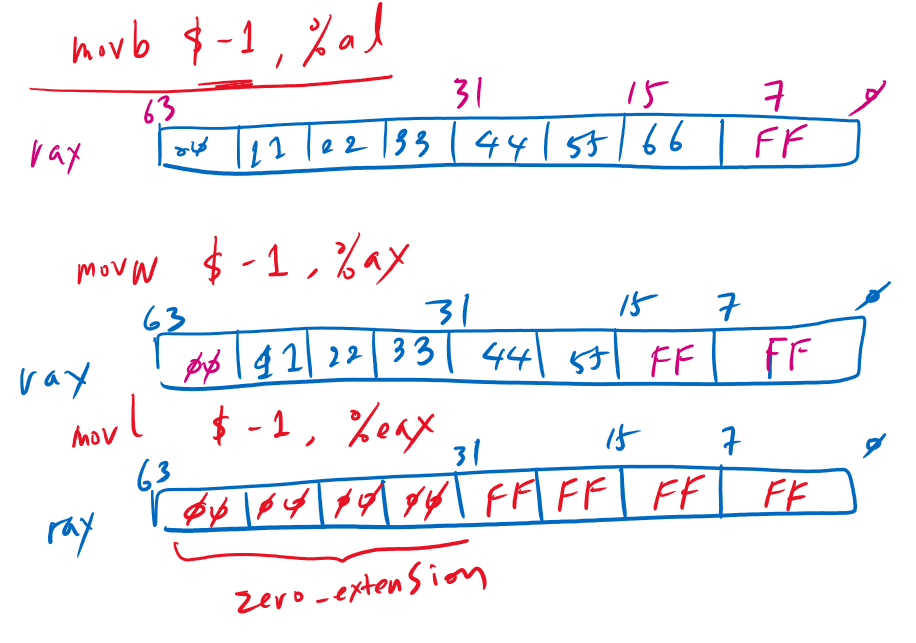 movb $-1, %al
63 31 15 7 0
rax 00 11 22 33 44 55 66 FF
movw $-1, %ax
63 31 15 7 0
rax 00 11 22 33 44 55 FF FF
movl $-1, %eax
63 31 15 7 0
rax 00 00 00 00 FF FF FF FF
zero-extension